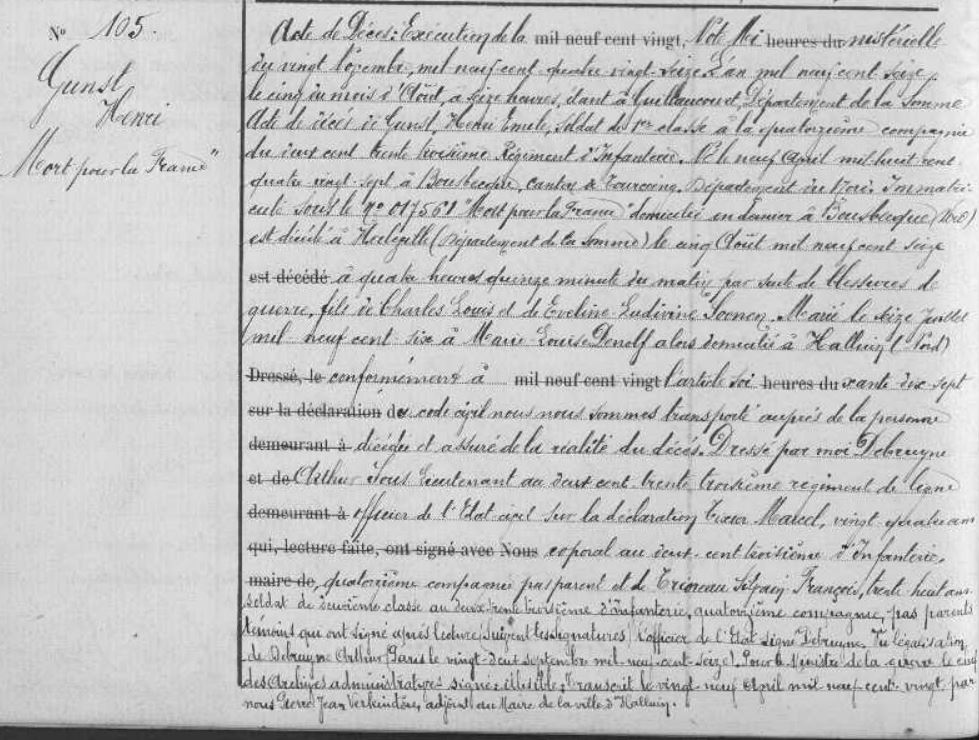 No 105.
Gunst
Henri
"Mort pour la France"
Acte de Décès: Exécution de la mil neuf cent vingt, Note Mi heures du nistérielle
du vingt novembre, mil neuf cent quatre vingt-seize L'an mil neuf cent seize,
le cinq du mois d'Août, à seize heures, étant à Guillaucourt, Département de la Somme
Acte de décès de Gunst, Henri Emile, soldat de 1re classe à la quatorzième compagnie
du deux cent trente troisième Régiment d'Infanterie. Né le neuf Avril mil huit cent
quatre vingt-sept à Bousbecque, canton de Tourcoing. Département du Nord. Immatri
culé sous le no 017561 "Mort pour la France" domicilié en dernier à Bousbecque (Nord)
est décédé à Herleville (Département de la Somme) le cinq Août mil neuf cent seize
est décédé à quatre heures quinze minute du matin par suite de blessures de
guerre, fils de Charles Louis et de Eveline Ludivine Soenen. Marié le seize Juillet
mil neuf cent six à Marie-Louise Denolf alors domicilié à Halluin (Nord)
Dressé, le conformément à mil neuf cent vingt l'article soi heures du xante dix sept
sur la déclaration de code civil nous nous sommes transporté auprès de la personne
demeurant à décédée et assuré de la réalité du décès. Dressé par moi Debruyne
et de Arthur Sous Lieutenant au deux cent trente troisième régiment de ligne
demeurant à officier de l'Etat civil sur la déclaration Marcel, vingt quatre ans
qui, lecture faite, ont signé avec Nous coporal au deux cent troisième d'Infanterie,
maire de, quatorzième compagnie pas parent et de François, trente huit ans
soldat de deuxième classe au deux trente troisième d'infanterie, quatorzième compagnie, pas parents
témoins qui ont signé après lecture, suivent les signatures, l'officier de l'Etat signé Debruyne. Vu légalisation
de Debruyne Arthur (Paris le vingt-deux septembre mil neuf-cent-seize). Pour le Ministre de la guerre le chef
des Archives administratives signé: illisible; Transcrit le vingt neuf Avril mil neuf cent vingt par
nous Pierre Jean Verkindère, adjoint au Maire de la ville d'Halluin.